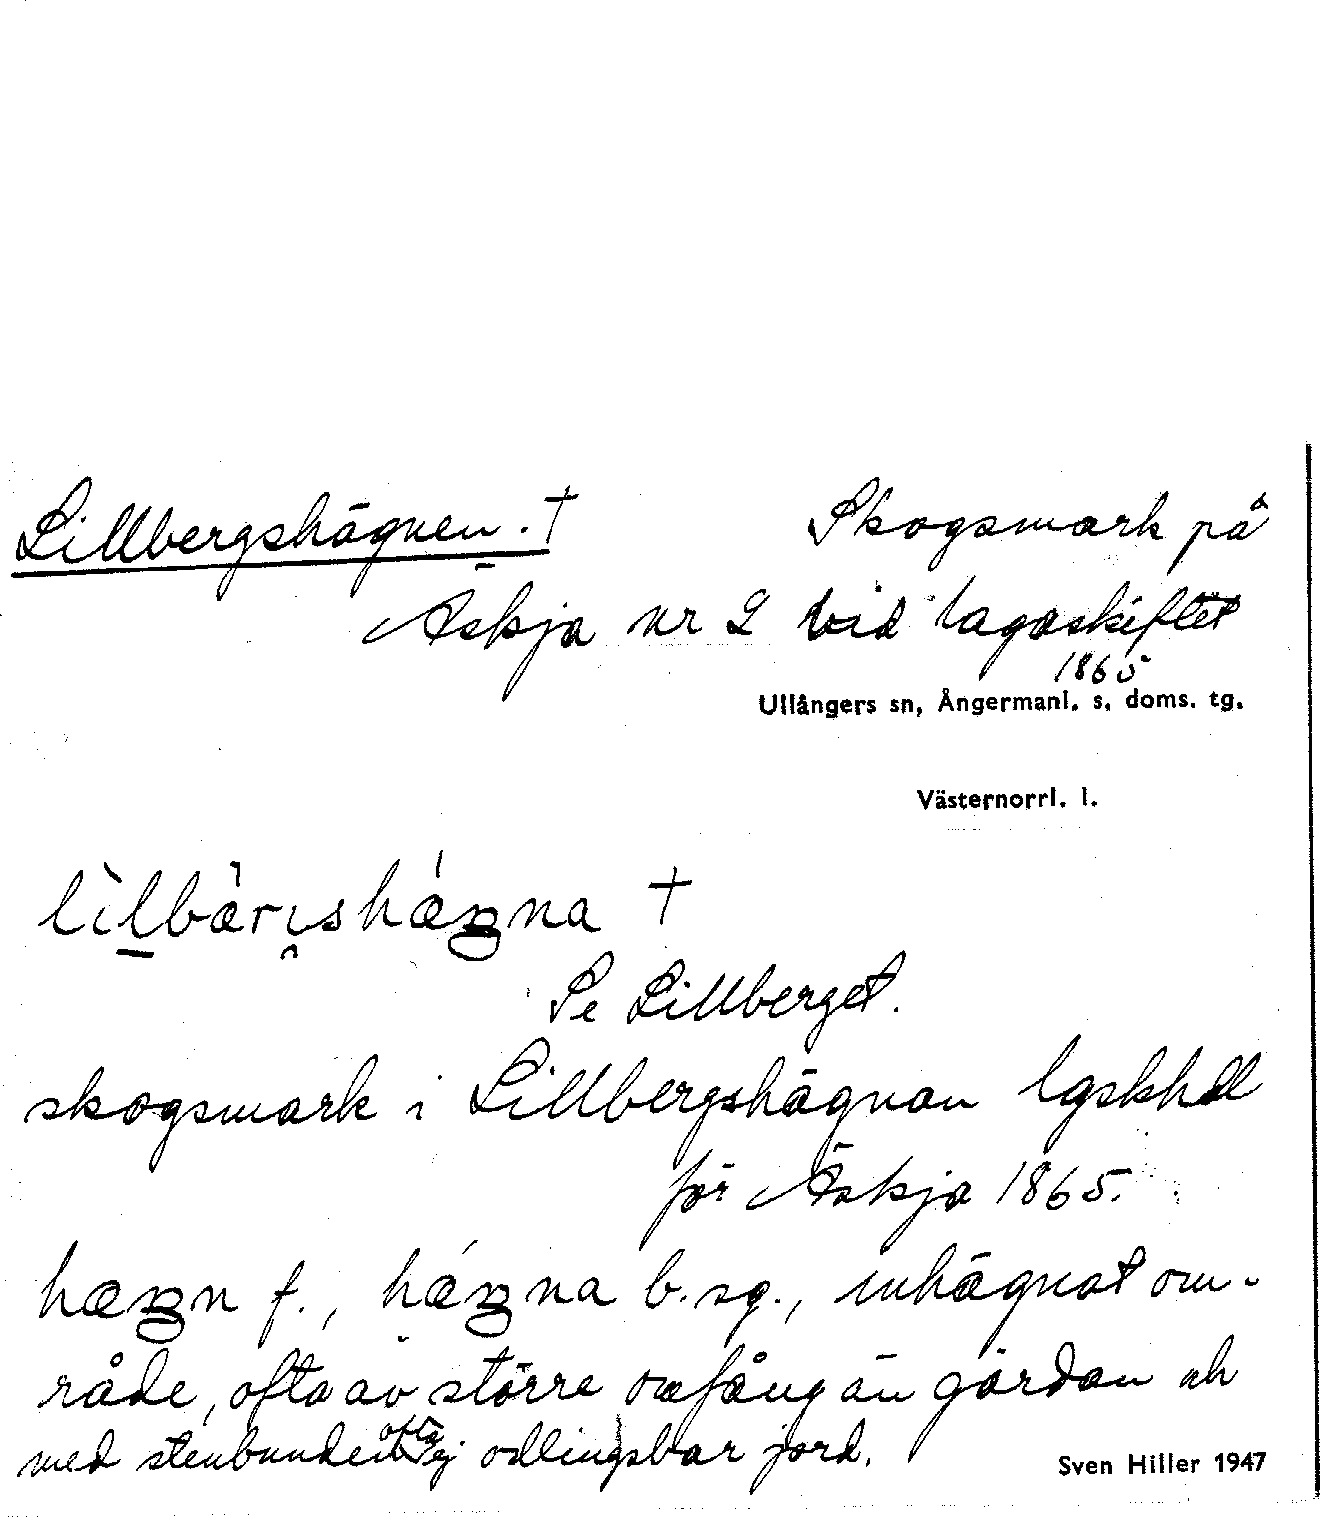 Lillbergshägnen. † Skogsmark på
Äskja nr 2 vid lagaskiftet
1865
Ullångers sn, Ångermanl. s. doms. tg.
Västernorrl. l.
†
Se Lillberget.
skogsmark i Lillbergshägnan lgskhdl
för Äskja 1865.
f., b. sg., inhägnat om-
råde, ofta av större omfång än gärdan och
med stenbunden ofta ej odlingsbar jord.
Sven Hiller 1947